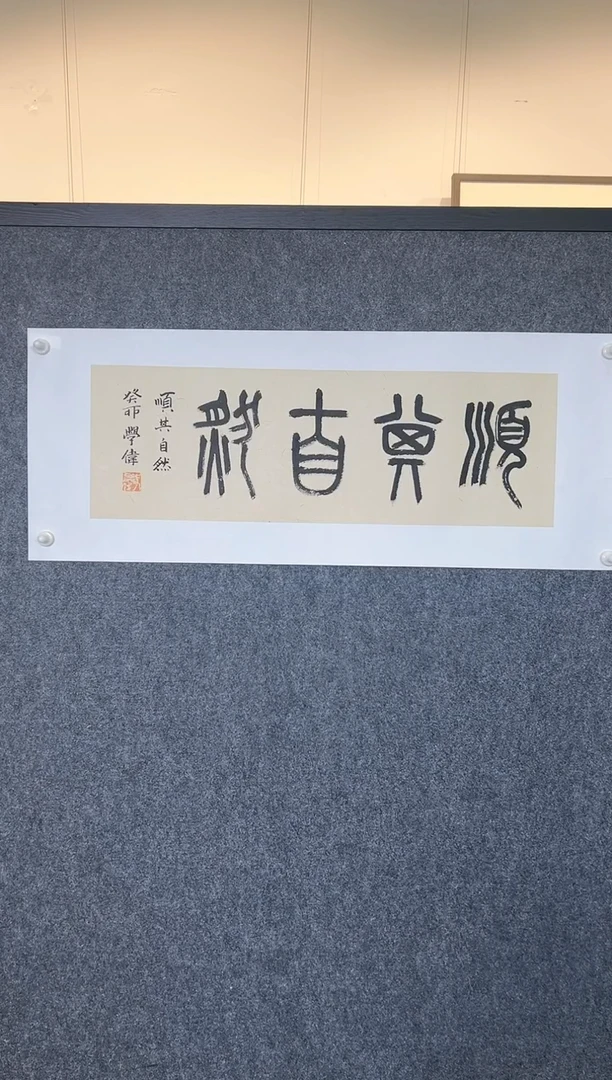 順其自然
順其自然
癸卯學偉